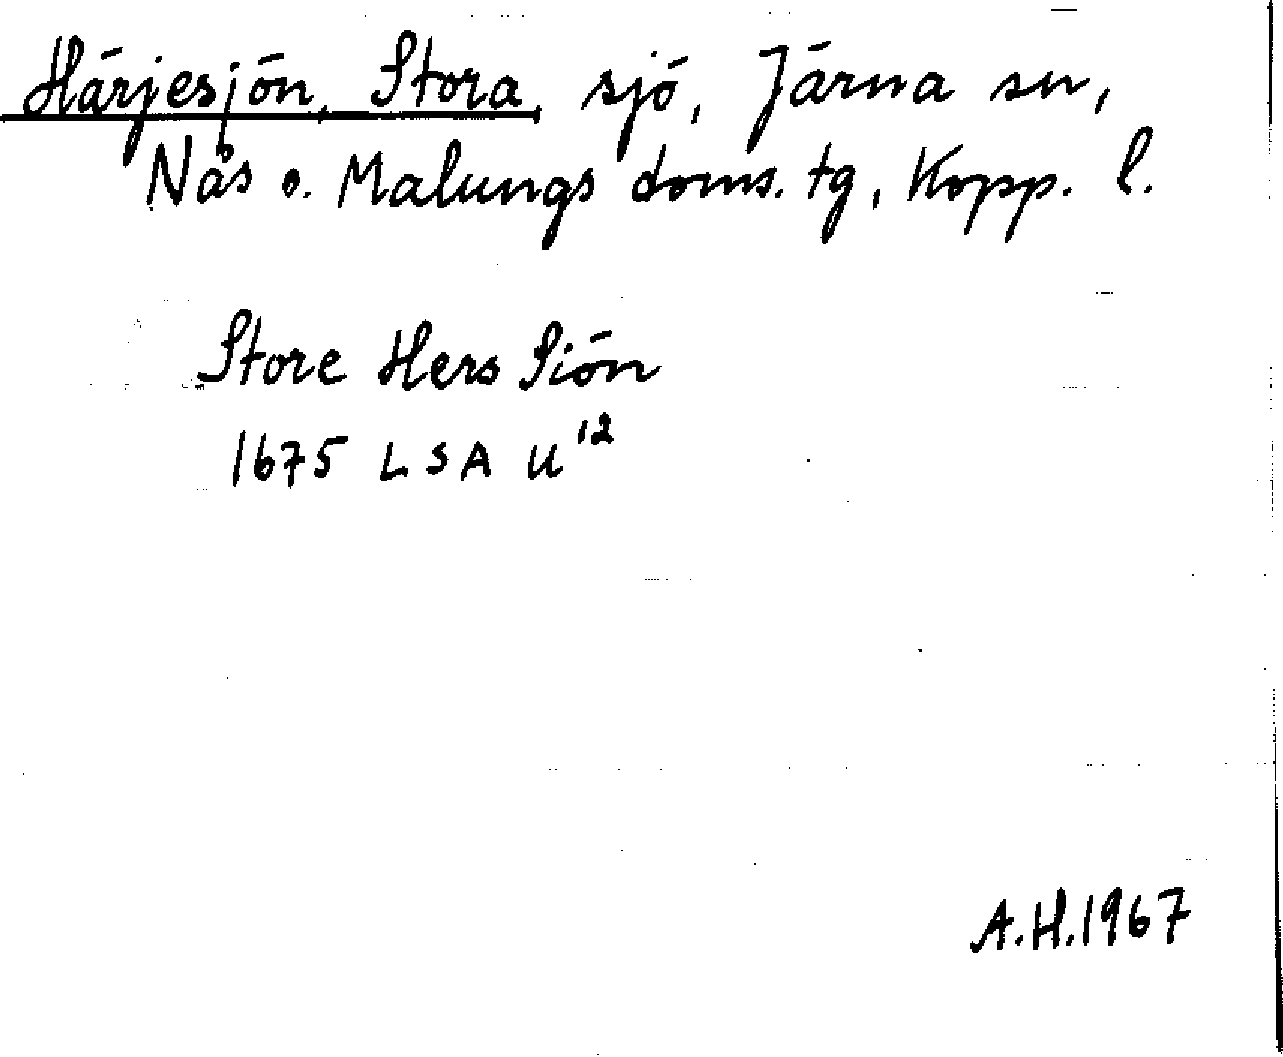 Härjesjön, Stora, sjö, Järna sn,
Nås o. Malungs doms. tg, Kopp. l.
Store Hers Siön
1675 LSA U¹²
A.H.1967